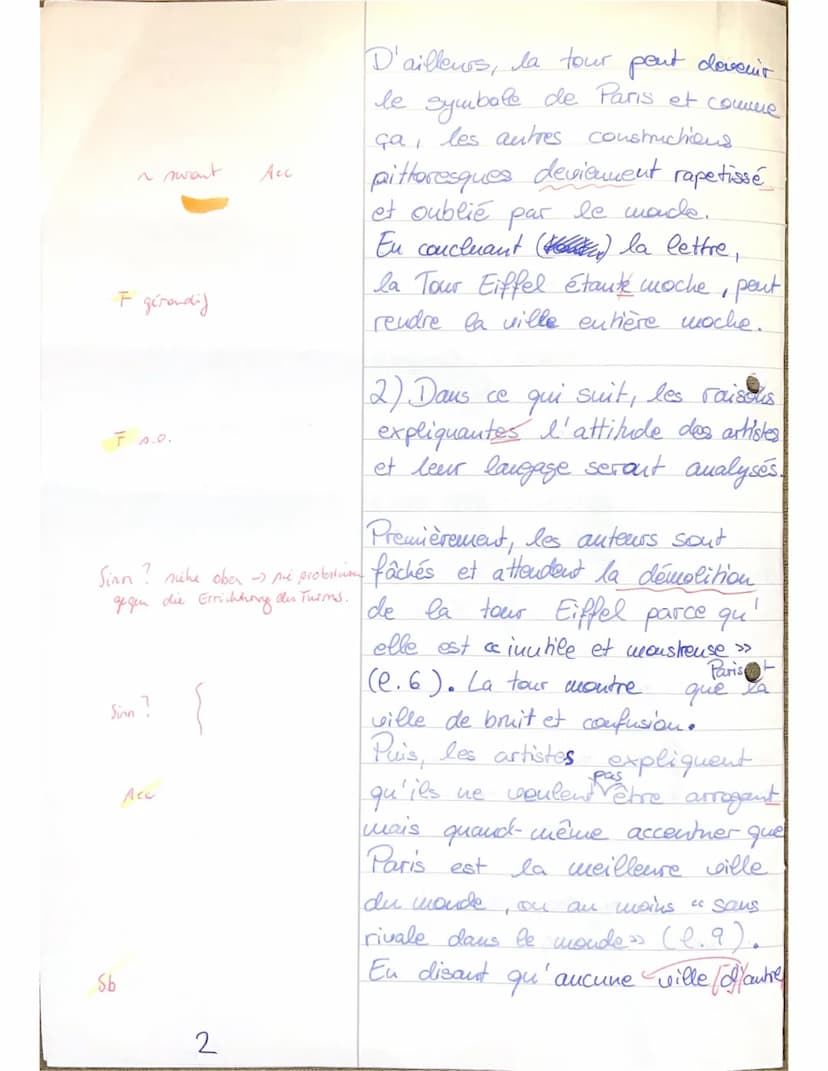 D'ailleurs, la tour peut devenir
le symbole de Paris et comme
ça, les autres constructions
~ Acc
pittoresques deviement rapetissé
et oublié par le monde.
En concluant () la lettre,
F gérondif
la Tour Eiffel étant moche, peut
rendre la ville entière moche.
2) Dans ce qui suit, les raisons
F s.o.
expliquantes l'attitude des artistes
et leur langage seront analysés.
Premièrement, les auteurs sont
Sinn? siehe oben → sie protestieren
fâchés et attendent la démolition
gegen die Errichtung des Turms.
de la tour Eiffel parce qu'
elle est « inutile et monstreuse »
(l. 6). La tour montre que Paris est la
Sinn?
ville de bruit et confusion.
Puis, les artistes expliquent
Acc
qu'ils ne veulent pas être arrogant
mais quand-même accentuer que
Paris est la meilleure ville
du monde, ou au moins « sans
rivale dans le monde » (l. 9).
Sb
En disant qu'aucune ville [d']autre
2